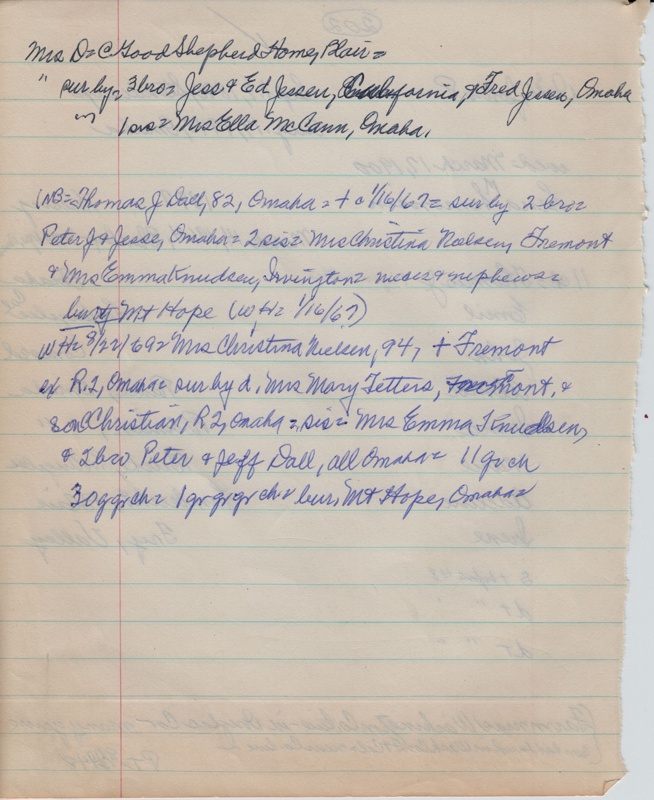 Mrs D = @ Good Shepherd Home, Blair =
" sur by = 3 bro = Jess & Ed Jessen, California, & Fred Jessen, Omaha
" 1 sis = Mrs Ella McCann, Omaha.
NB = Thomas J Dall, 82, Omaha = + c 1/16/67 = sur by 2 bro =
Peter J & Jesse, Omaha = 2 sis = Mrs Christina Nielsen, Fremont
& Mrs Emma Knudsen, Irvington = nieces & nephews =
bur Mt Hope (WH = 1/16/67)
WH = 8/22/69 = Mrs Christina Nielsen, 94, + Fremont
ex R.2, Omaha = sur by d. Mrs Mary Tetters, Fremont, &
son Christian, R2, Omaha = sis = Mrs Emma Knudsen,
& 2 bro Peter & Jeff Dall, all Omaha = 11 gr ch
30 ggrch = 1 gr gr gr ch = bur, Mt Hope, Omaha =